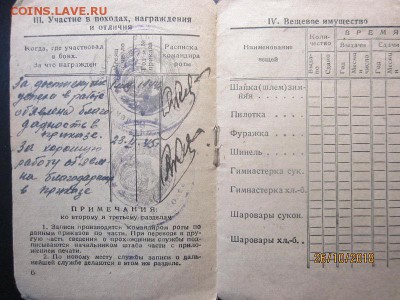 COINS.SU
RUSNUMISMAT.RU
III. Участие в походах, награждения
и отличия
Когда, где участвовал
в боях.
За что награжден
Расписка
командира
роты
За достигнутые
успехи в работе
объявлена благо-
дарность в
приказе.
За хорошую
работу объявле-
на благодарность
в приказе
23.II.45г.
ПРИМЕЧАНИЯ:
ко второму и третьему разделам
1. Записи производятся командиром роты по
данным приказов по части. При переводе в дру-
гую часть сведения о прохождении службы под-
писываются начальником штаба части с прило-
жением печати.
2. По новому месту службы записи о даль-
нейшей службе делаются в этом же разделе.
6
IV. Вещевое имущество
Наименование
вещей
Коли-
чество
ВРЕМЯ
Выдачи
Сдачи
Год
Месяц
и число
Год
Шапка(шлем)зим-
няя
Пилотка
Фуражка
Шинель
Гимнастерка сук.
Гимнастерка хл.-б.
Шаровары сукон.
Шаровары хл.-б.
25/10/2018